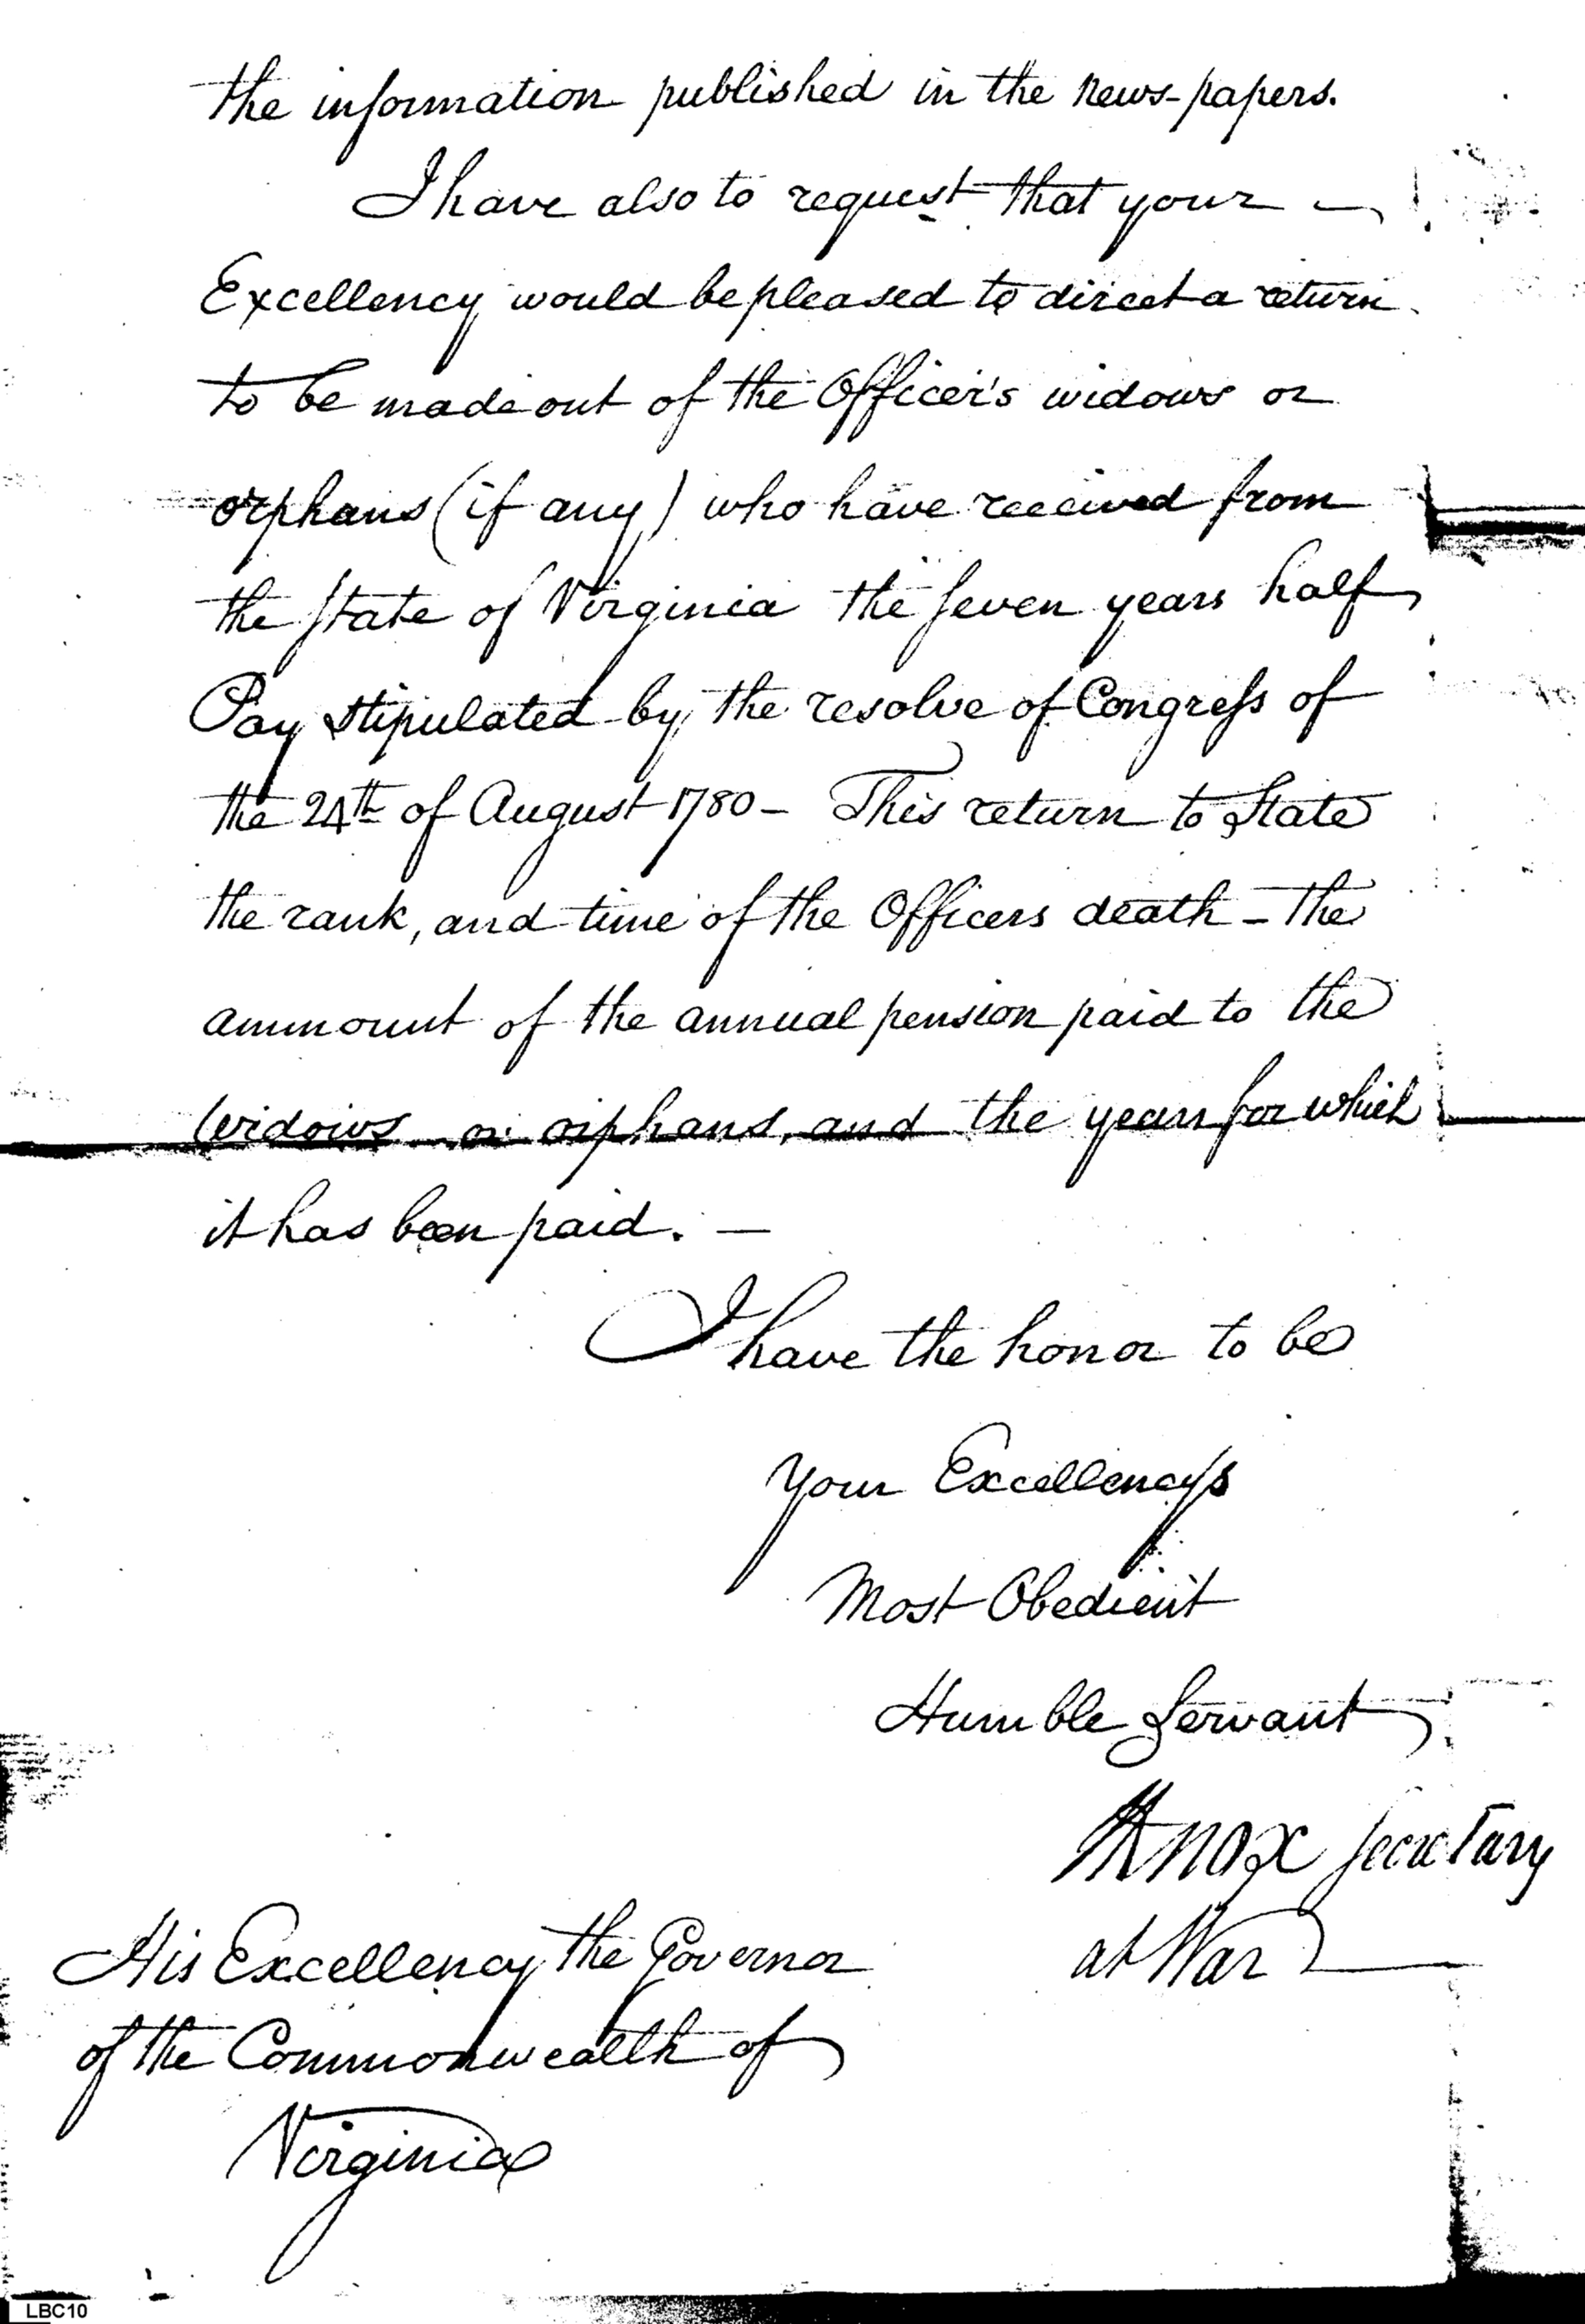 the information published in the news-papers.
I have also to request that your
Excellency would be pleased to direct a return
to be made out of the Officer's widows or
orphans (if any) who have received from
the State of Virginia the seven years half
Pay stipulated by the resolve of Congress of
the 24th of August 1780 – This return to State
the rank, and time of the Officers death – the
ammount of the annual pension paid to the
Widows or orphans, and the years for which
it has been paid. —
I have the honor to be
Your Excellencys
Most Obedient
Humble Servant
HKnox Secretary
at War
His Excellency the Governor
of the Commonwealth of
Virginia
LBC10